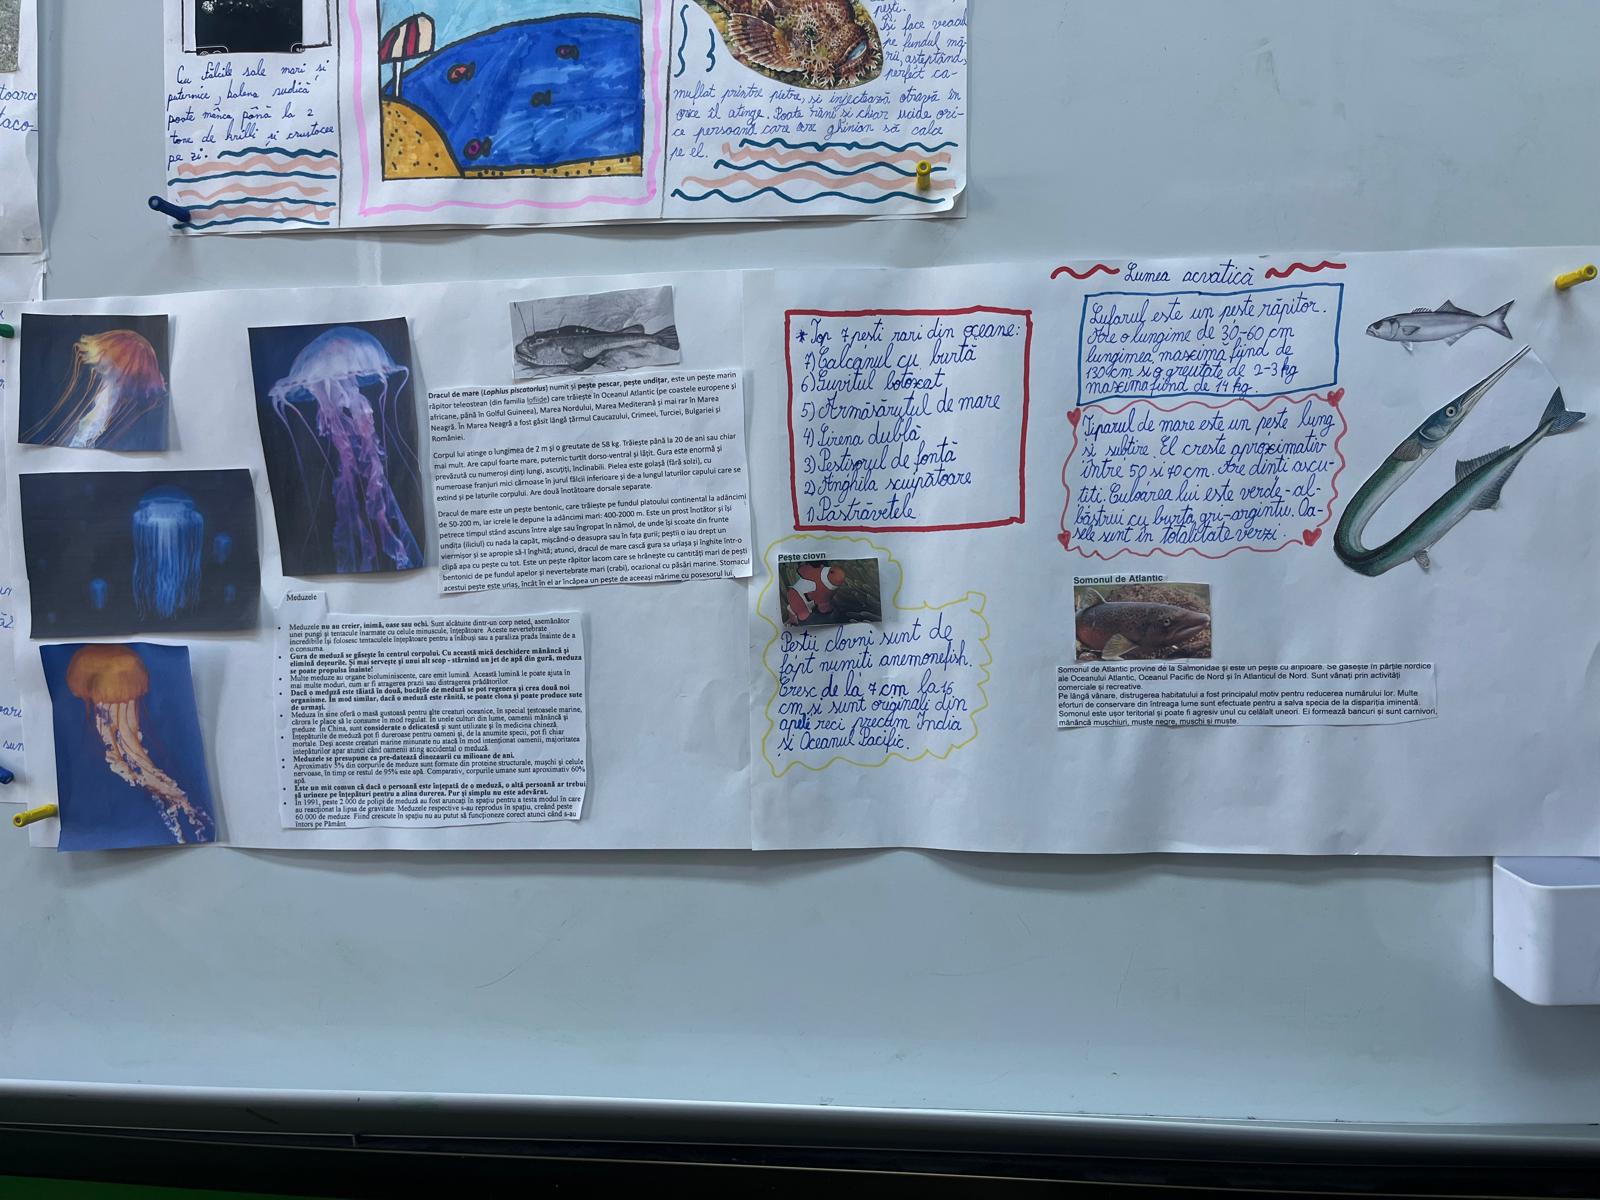 toarce
taco-
Cu fălcile sale mari și
puternice, balena sudică
poate mânca până la 2
tone de krilli și crustacee
pe zi.
pești.
Își face veacul
pe fundul mă-
rii, așteptând,
perfect ca-
muflat printre pietre, și injectează otravă în
orice îl atinge. Poate răni și chiar ucide ori-
ce persoană care are ghinion să calce
pe el.
Dracul de mare (Lophius piscatorius) numit și pește pescar, pește undițar, este un pește marin
răpitor teleostean (din familia lofiide) care trăiește în Oceanul Atlantic (pe coastele europene și
africane, până în Golful Guineea), Marea Nordului, Marea Mediterană și mai rar în Marea
Neagră. În Marea Neagră a fost găsit lângă țărmul Caucazului, Crimeei, Turciei, Bulgariei și
României.
Corpul lui atinge o lungimea de 2 m și o greutate de 58 kg. Trăiește până la 20 de ani sau chiar
mai mult. Are capul foarte mare, puternic turtit dorso-ventral și lățit. Gura este enormă și
prevăzută cu numeroși dinți lungi, ascuțiți, înclinabili. Pielea este golașă (fără solzi), cu
numeroase franjuri mici cărnoase în jurul fălcii inferioare și de-a lungul laturilor capului care se
extind și pe laturile corpului. Are două înotătoare dorsale separate.
Dracul de mare este un pește bentonic, care trăiește pe fundul platoului continental la adâncimi
de 50-200 m, iar icrele le depune la adâncimi mari: 400-2000 m. Este un prost înotător și își
petrece timpul stând ascuns între alge sau îngropat în nămol, de unde își scoate din frunte
undița (iliciul) cu nada la capăt, mișcând-o deasupra sau în fața gurii; peștii o iau drept un
viermișor și se apropie să-l înghită; atunci, dracul de mare cască gura sa uriașa și înghite într-o
clipă apa cu pește cu tot. Este un pește răpitor lacom care se hrănește cu cantități mari de pești
bentonici de pe fundul apelor și nevertebrate mari (crabi), ocazional cu păsări marine. Stomacul
acestui pește este uriaș, încât în el ar încăpea un pește de aceeași mărime cu posesorul lui.
Meduzele
Meduzele nu au creier, inimă, oase sau ochi. Sunt alcătuite dintr-un corp neted, asemănător
unei pungi și tentacule înarmate cu celule minuscule, înțepătoare. Aceste nevertebrate
incredibile își folosesc tentaculele înțepătoare pentru a înăbuși sau a paraliza prada înainte de a
o consuma.
Gura de meduză se găsește în centrul corpului. Cu această mică deschidere mănâncă și
elimină deșeurile. Și mai servește și unui alt scop - stârnind un jet de apă din gură, meduza
se poate propulsa înainte!
Multe meduze au organe bioluminiscente, care emit lumină. Această lumină le poate ajuta în
mai multe moduri, cum ar fi atragerea prazii sau distragerea prădătorilor.
Dacă o meduză este tăiată în două, bucățile de meduză se pot regenera și crea două noi
organisme. În mod similar, dacă o meduză este rănită, se poate clona și poate produce sute
de urmași.
Meduza în sine oferă o masă gustoasă pentru alte creaturi oceanice, în special țestoasele marine,
cărora le place să le consume în mod regulat. În unele culturi din lume, oamenii mănâncă și
meduze. În China, sunt considerate o delicatesă și sunt utilizate și în medicina chineză.
Înțepăturile de meduză pot fi dureroase pentru oameni și, de la anumite specii, pot fi chiar
mortale. Deși aceste creaturi marine minunate nu atacă în mod intenționat oamenii, majoritatea
înțepăturilor apar atunci când oamenii ating accidental o meduză.
Meduzele se presupune ca pre-datează dinozaurii cu milioane de ani.
Aproximativ 5% din corpurile de meduze sunt formate din proteine structurale, mușchi și celule
nervoase, în timp ce restul de 95% este apă. Comparativ, corpurile umane sunt aproximativ 60%
apă.
Este un mit comun că dacă o persoană este înțepată de o meduză, o altă persoană ar trebui
să urineze pe înțepături pentru a alina durerea. Pur și simplu nu este adevărat.
În 1991, peste 2 000 de polipi de meduză au fost aruncați în spațiu pentru a testa modul în care
au reacționat la lipsa de gravitate. Meduzele respective s-au reprodus în spațiu, creând peste
60.000 de meduze. Fiind crescute în spațiu nu au putut să funcționeze corect atunci când s-au
întors pe Pământ.
* Top 7 pești rari din oceane:
7) Calcanul cu burtă
6) Șuvitul botoxat
5) Armăsăruțul de mare
4) Sirena dublă
3) Peștișorul de fontă
2) Anghila scuipătoare
1) Păstrăvetele
Pește clovn
Peștii clovni sunt de
fapt numiți anemonefish.
Cresc de la 7 cm la 16
cm și sunt originali din
apele reci precum India
și Oceanul Pacific.
Lumea acvatică
Lufarul este un pește răpitor.
Are o lungime de 30-60 cm
lungimea maximă fiind de
130 cm și o greutate de 2-3 kg
maxima fiind de 14 kg.
Țiparul de mare este un pește lung
și subțire. El crește aproximativ
între 50 și 70 cm. Are dinți ascu-
țiți. Culoarea lui este verde-al-
băstrui cu burta gri-argintiu. Oa-
sele sunt în totalitate verzi.
Somonul de Atlantic
Somonul de Atlantic provine de la Salmonidae și este un pește cu aripioare. Se găsește în părțile nordice
ale Oceanului Atlantic, Oceanul Pacific de Nord și în Atlanticul de Nord. Sunt vânați prin activități
comerciale și recreative.
Pe lângă vânare, distrugerea habitatului a fost principalul motiv pentru reducerea numărului lor. Multe
eforturi de conservare din întreaga lume sunt efectuate pentru a salva specia de la dispariția iminentă.
Somonul este ușor teritorial și poate fi agresiv unul cu celălalt uneori. Ei formează bancuri și sunt carnivori,
mănâncă muschiuri, muște negre, muschi si muște.